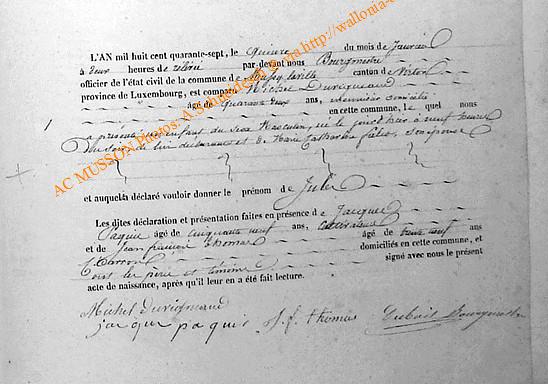 L'AN mil huit cent quarante-sept, le quinze du mois de Janvier
à deux heures de relevée par devant nous Bourgmestre
officier de l'état civil de la commune de canton de Virton
province de Luxembourg, est comparu Michel
âgé de quarante deux ans, domicilié
en cette commune, le quel nous
a présenté un enfant du sexe Masculin, né le jour d'hier à neuf heures
du soir, de lui déclarant et de Marie Catherine son épouse
et auquel a déclaré vouloir donner le prénom de Jules
Les dites déclaration et présentation faites en présence de Jacques
Paquis âgé de cinquante neuf ans, cultivateur âgé de trente neuf ans
et de Jean françois thomas domiciliés en cette commune, et
ont le père et témoins signé avec nous le présent
acte de naissance, après qu'il leur en a été fait lecture.
Michel
jacque paquis J. f. thomas Dubois Bourgmestre
AC MUSSON Photos: A. via http://wallonia-